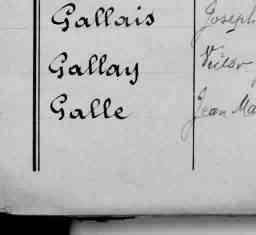 Gallais Joseph
Gallay Victor
Galle Jean Ma